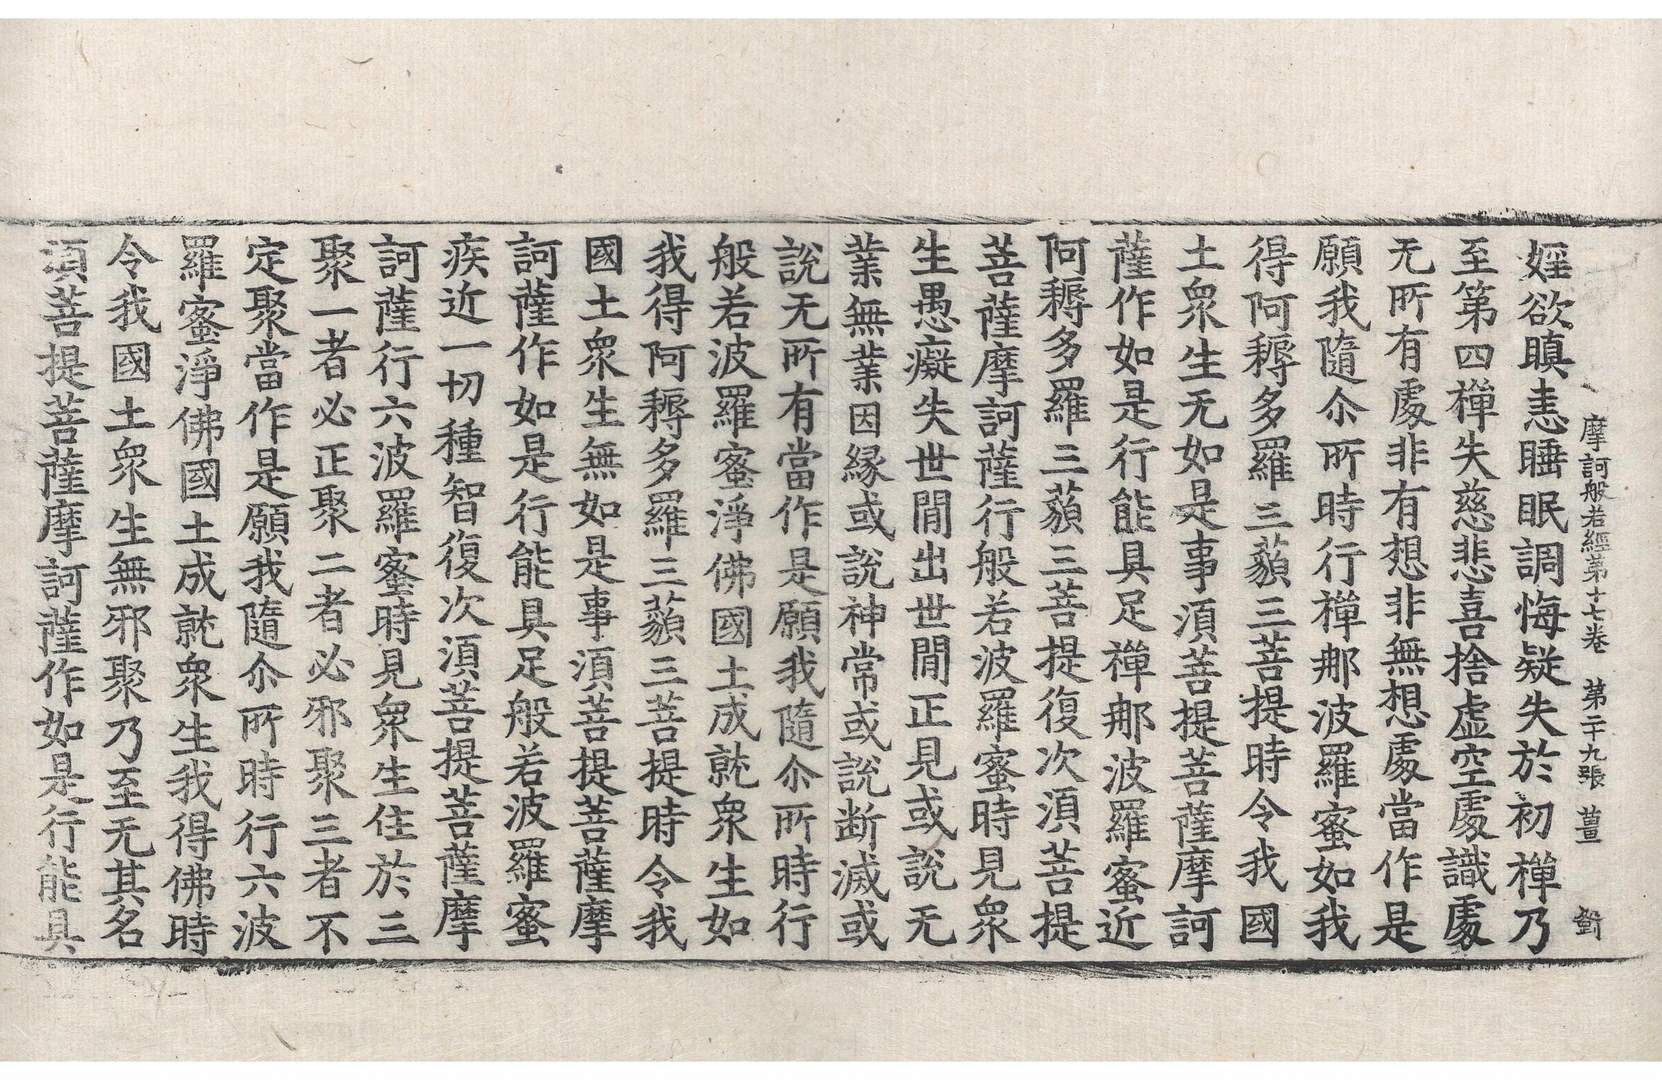 摩訶般若經第十七卷 第二十九張 薑
婬欲瞋恚睡眠調悔疑失於初禪乃
至第四禪失慈悲喜捨虛空處識處
无所有處非有想非無想處當作是
願我隨尒所時行禪那波羅蜜如我
得阿耨多羅三藐三菩提時令我國
土衆生无如是事湏菩提菩薩摩訶
薩作如是行能具足禪那波羅蜜近
阿耨多羅三藐三菩提復次湏菩提
菩薩摩訶薩行般若波羅蜜時見衆
生愚癡失世閒出世閒正見或說无
業無業因緣或說神常或說断滅或
說无所有當作是願我隨尒所時行
般若波羅蜜淨佛國土成就衆生如
我得阿耨多羅三藐三菩提時令我
國土衆生無如是事湏菩提菩薩摩
訶薩作如是行能具足般若波羅蜜
疾近一切種智復次湏菩提菩薩摩
訶薩行六波羅蜜時見衆生住於三
聚一者必正聚二者必邪聚三者不
定聚當作是願我隨尒所時行六波
羅蜜淨佛國土成就衆生我得佛時
令我國土衆生無邪聚乃至无其名
湏菩提菩薩摩訶薩作如是行能具